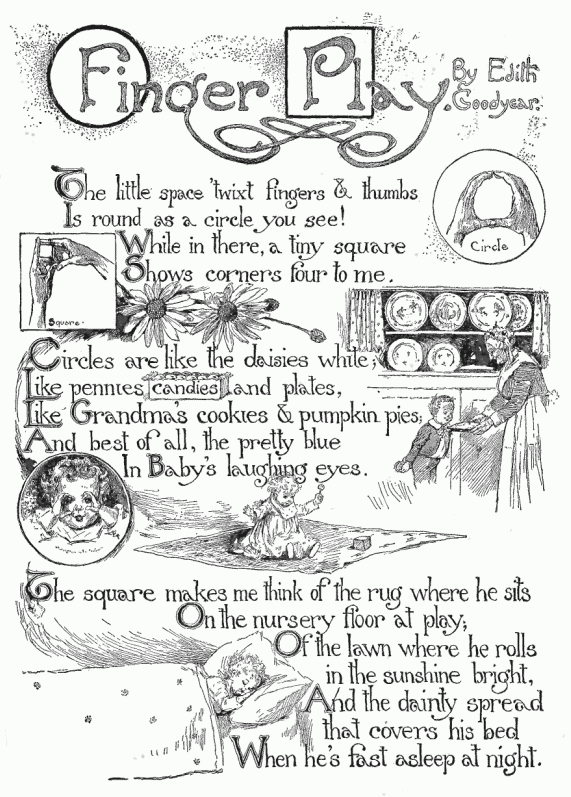 Finger Play.
By Edith
Goodyear.
The little space 'twixt fingers & thumbs
Is round as a circle you see!
While in there, a tiny square
Shows corners four to me.
Circle
Square.
Circles are like the daisies white;
Like pennies candies and plates,
Like Grandma's cookies & pumpkin pies;
And best of all, the pretty blue
In Baby's laughing eyes.
The square makes me think of the rug where he sits
On the nursery floor at play;
Of the lawn where he rolls
in the sunshine bright,
And the dainty spread
that covers his bed
When he's fast asleep at night.